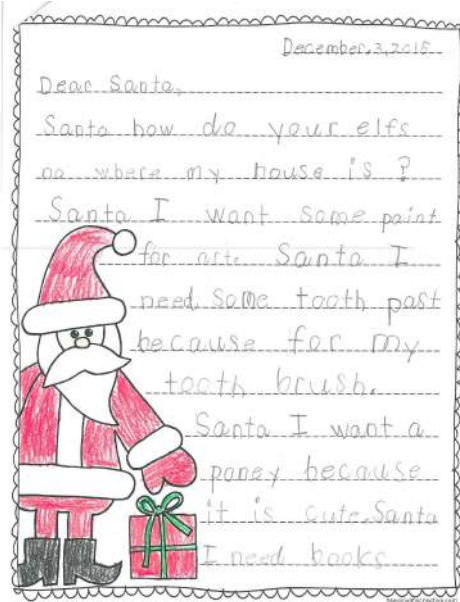 December,3,2015
Dear Santa,
Santa how do your elfs
no where my house is ?
Santa I want some paint
for art. Santa I
need some tooth past
because for my
tooth brush.
Santa I want a
poney because
it is cute.Santa
I need books